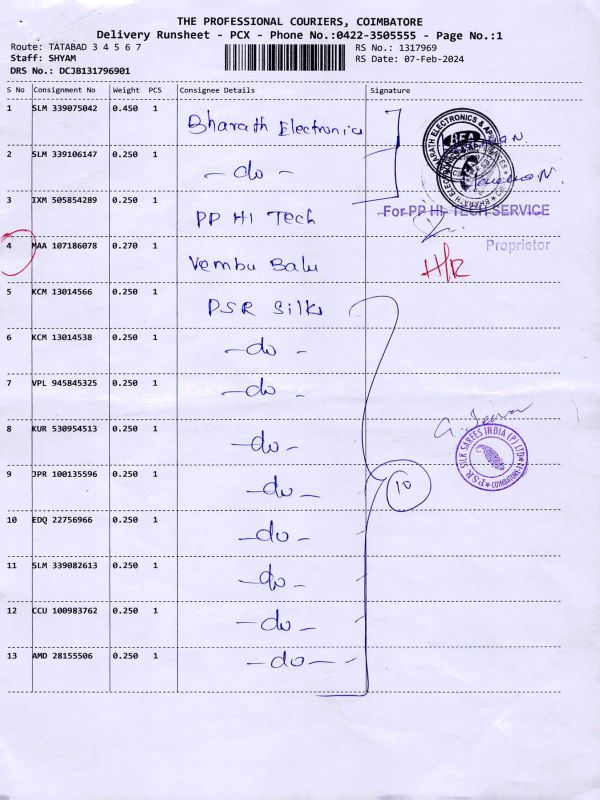 THE PROFESSIONAL COURIERS, COIMBATORE
Delivery Runsheet - PCX - Phone No.:0422-3505555 - Page No.:1
Route: TATABAD 3 4 5 6 7 RS No.: 1317969
Staff: SHYAM RS Date: 07-Feb-2024
DRS No.: DCJB131796901
S No Consignment No Weight PCS Consignee Details Signature
1 SLM 339075042 0.450 1 Bharath Electronics
2 SLM 339106147 0.250 1 - do -
3 IXM 505854289 0.250 1 PP HI Tech
For PP HI-TECH SERVICE
Proprietor
4 MAA 107186078 0.270 1 Vembu Balu H/R
5 KCM 13014566 0.250 1 PSR Silks
6 KCM 13014538 0.250 1 - do -
7 VPL 945845325 0.250 1 - do -
8 KUR 530954513 0.250 1 - do -
PSR SILK SAREES INDIA (P) LTD
COIMBATORE-12
9 JPR 100135596 0.250 1 - do - 10
10 EDQ 22756966 0.250 1 - do -
11 SLM 339082613 0.250 1 - do -
12 CCU 100983762 0.250 1 - do -
13 AMD 28155506 0.250 1 - do -